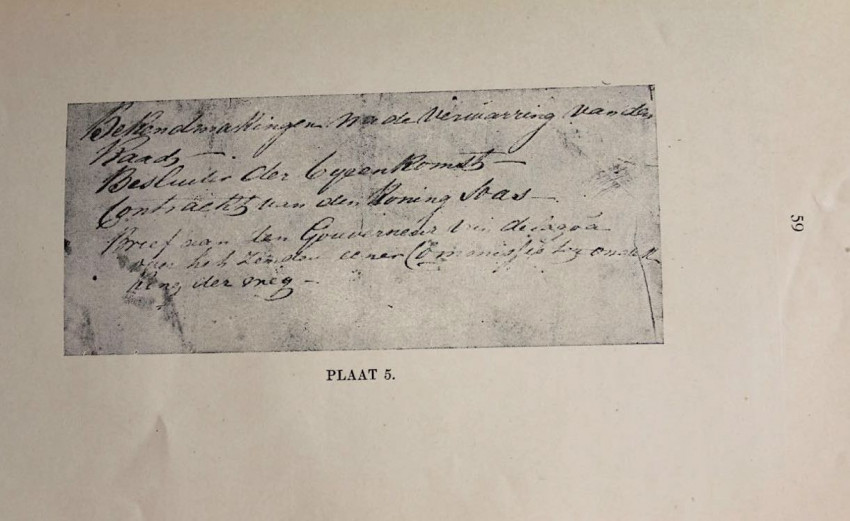 Bekendmakkingen na de Verwarring van den
Raad —
Besluite der byeenkomst —
Contrackt van den Koning Swas —
Brief van den Gouverneur van delagoa
over het zenden eener Commissie
der weg —
PLAAT 5.
59